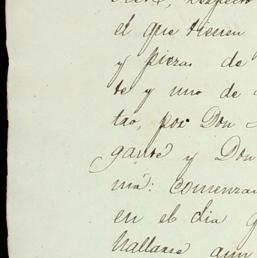 el que tienen
y piezas de
te y uno de
tao, por Don
gante y Don
ma: comenza
en el dia
hallarse aun